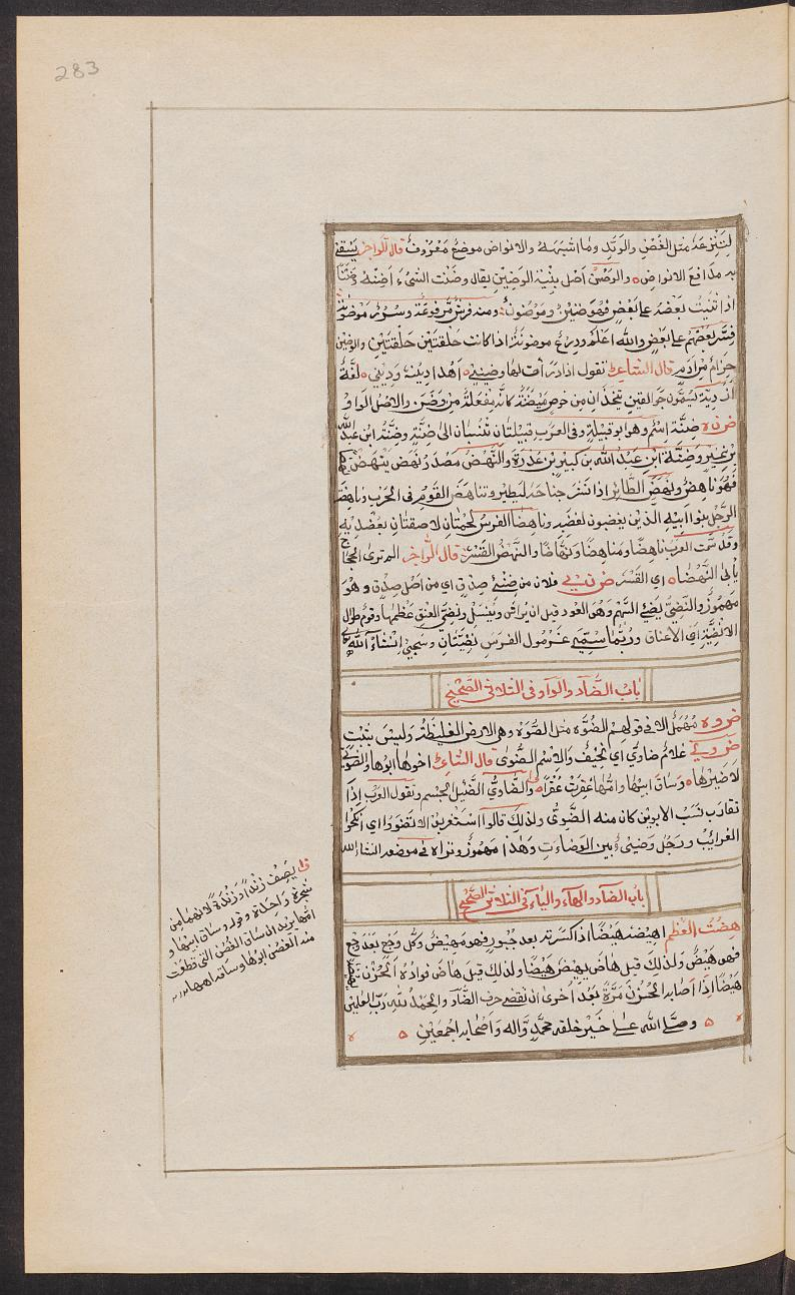 283
لتنزعه مثل الغصن والوتد وما اشبهه والانواض موضع معروف قال الراجز يسقى
به مدافع الانواض والوضن اصل بنية الوضين يقال وضنت الشىء اضنه وضنا
اذا ثنيت بعضه على بعض فهو وضين وموضون ومنه فرش مرفوعة وسرر موضونة
بعضهم على بعض والله اعلم ودرع موضونة اذا كانت حلقتين حلقتين والوضين
حزام من ادم قال الشاعر تقول اذا درأت لها وضينى اهذا دينه ودينى لغة
يسمون جوالقين يتخذان من خوص ميضنة كانه مفعلة من وضن والاصل الواو
ض ن ه ضنة اسم وهو ابو قبيلة وفى العرب قبيلتان تنسبان الى ضنة وضنة ابن عبدالله
بن نمير وضنة ابن عبد الله بن كبير بن عذرة والنهض مصدر نهض ينهض
فهو ناهض ونهض الطائر اذا نشر جناحيه ليطير وتناهض القوم فى الحرب وناهضة
الرجل بنو ابيه الذين يغضبون لغضبه وناهضا الفرس لحمتان لاصقتان بعضديه
وقد سمت العرب ناهضا ومناهضا ونهاضا والنهض القسر قال الراجز الم ترى الحجاج
يأبى النهضا اى القسر ض ن ى فلان من ضنئ صدق اى من اصل صدق وهو
مهموز والنضى نضى السهم وهى العود قبل ان يراش وينصل ونضى العنق عظمها وقوم طوال
الانضية اى الاعناق وربما سمى غرمول الفرس نضيتان وستجئ انشاء الله
باب الضاد والواو فى الثلاثى الصحيح
ض و ه مهمل الا فى قولهم الضوه مثل الصوه وهى الارض الغليظة وليس بثبت
ض و ى غلام ضاوى اى نحيف والاسم الضوى قال الشاعر اخوها ابوها والضوى
لا ضيرها وساق ابيها وامها عقرت عقرا والضاوى الضئيل الجسم وتقول العرب اذا
تقارب نسب الابوين كان منه الضوى ولذلك قالوا استغربوا لا تضووا اى انكحوا
الغرائب ورجل وضئ بين الوضاءت وهذا مهموز وتراه فى موضعه انشاءالله
باب الضاد والهاء والياء فى الثلاثى الصحيح
هضت العظم اهيضه هيضا اذا كسرته بعد جبور فهو مهيض وكل وجع بعد وجع
فهو هيض ولذلك قيل هاض يهيض هيضا ولذلك قيل هاض فؤاده الحزن
هيضا اذا اصابه الحزن مرة بعد اخرى انقضى حرف الضاد والحمد لله رب العلمين
وصلى الله على خير خلقه محمد واله واصحابه اجمعين
يصف زندا وزندة لانهما من
شجرة واحدة وقوله وساق ابيها و
امها يريد ان ساق الغصن التى قطعت
منه الغصن ابوها وساقه امها